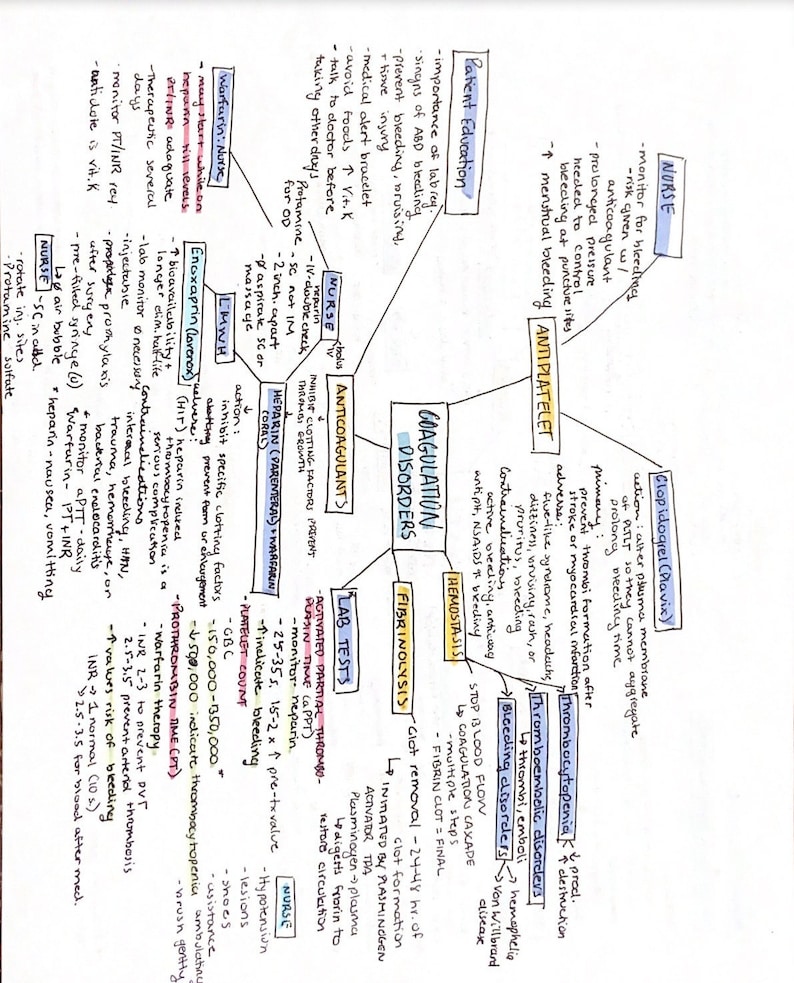 COAGULATION
DISORDERS
ANTIPLATELET
NURSE
- monitor for bleeding
- risk given w/
anticoagulant
- prolonged pressure
needed to control
bleeding at puncture sites
- ↑ menstrual bleeding
Clopidogrel (Plavix)
action: alter plasma membrane
of PLTLT so they cannot aggregate
prolong bleeding time
primary:
prevent thrombi formation after
stroke or myocardial infarction
adverse:
flu-like syndrome, headache,
dizziness, bruising, rash, or
pruritus, bleeding
contraindications
active bleeding, anticoag
antiplt, NSAIDS ↑ bleeding
HEMOSTASIS
STOP BLOOD FLOW
↳ COAGULATION CASCADE
- multiple steps
- FIBRIN CLOT = FINAL
Thrombocytopenia
↓ prod.
↑ destruction
Thromboembolic disorders
↳ thrombi, emboli
Bleeding disorders
→ hemophelia
→ Von Willbrand
disease
FIBRINOLYSIS
Clot removal - 24-48 hr. of
clot formation
↳ INITIATED BY PLASMINOGEN
ACTIVATOR TPA
Plasminogen → plasma
↳ digests fibrin to
restore circulation
LAB TESTS
- ACTIVATED PARTIAL THROMBO-
PLASTIN TIME (aPPT)
- monitor heparin
- 25-35 s, 1.5-2 x ↑ pre-tx value
- ↑ indicate bleeding
- PLATELET COUNT
- CBC
- 150,000 - 350,000 *
- ↓ 500,000 indicate thrombocytopenia
- PROTHROMBIN TIME (PT)
- warfarin therapy
- INR 2-3 to prevent DVT
2.5-3.5 prevent arterial thrombosis
- ↑ values risk of bleeding
INR → 1 normal (10 s)
↳ 2.5-3.5 for blood after med.
NURSE
- Hypotension
- lesions
- shoes
- assistance
ambulating
- brush gently
ANTICOAGULANTS
INHIBIT CLOTTING FACTORS PREVENT
THROMBI GROWTH
Patient Education
- importance of lab reg.
- singns of ABD bleeding
- prevent bleeding, bruising,
+ time injury
- medical alert bracelet
- avoid foods ↑ Vit. K
- talk to doctor before
taking other drugs
NURSE
bolus
IV
heparin
- IV-double check
- SC not IM
- 2 inch. apart
- ∅ aspirate SC or
massage
Protamine
for OD
Warfarin: Nurse
- may start while on
heparin till levels
PT/INR adequate
- Therapeutic several
days
- monitor PT/INR reg
- antidote is vit. K
HEPARIN (PARENTERAL) + WARFARIN
(ORAL)
action:
inhibit specific clotting factors
clotting prevent form or enlargement
adverse:
(HIT) heparin induced
thrombocytopenia is a
serious complication
contraindications
internal bleeding, HTN,
trauma, hemorrhage, or
bacterial endocarditis
* monitor aPTT - daily
Warfarin - PT + INR
* heparin - nausea, vomitting
LMWH
Enoxaprin (lovenox)
- ↑ bioavailability +
longer elim. half-life
- lab monitor ∅ necessary
- injectable
- prophylaxis
after surgery
- pre-filled syringe (u)
↳ ∅ air bubble
NURSE
- SC in abd.
- rotate inj. sites
- Protamine sulfate